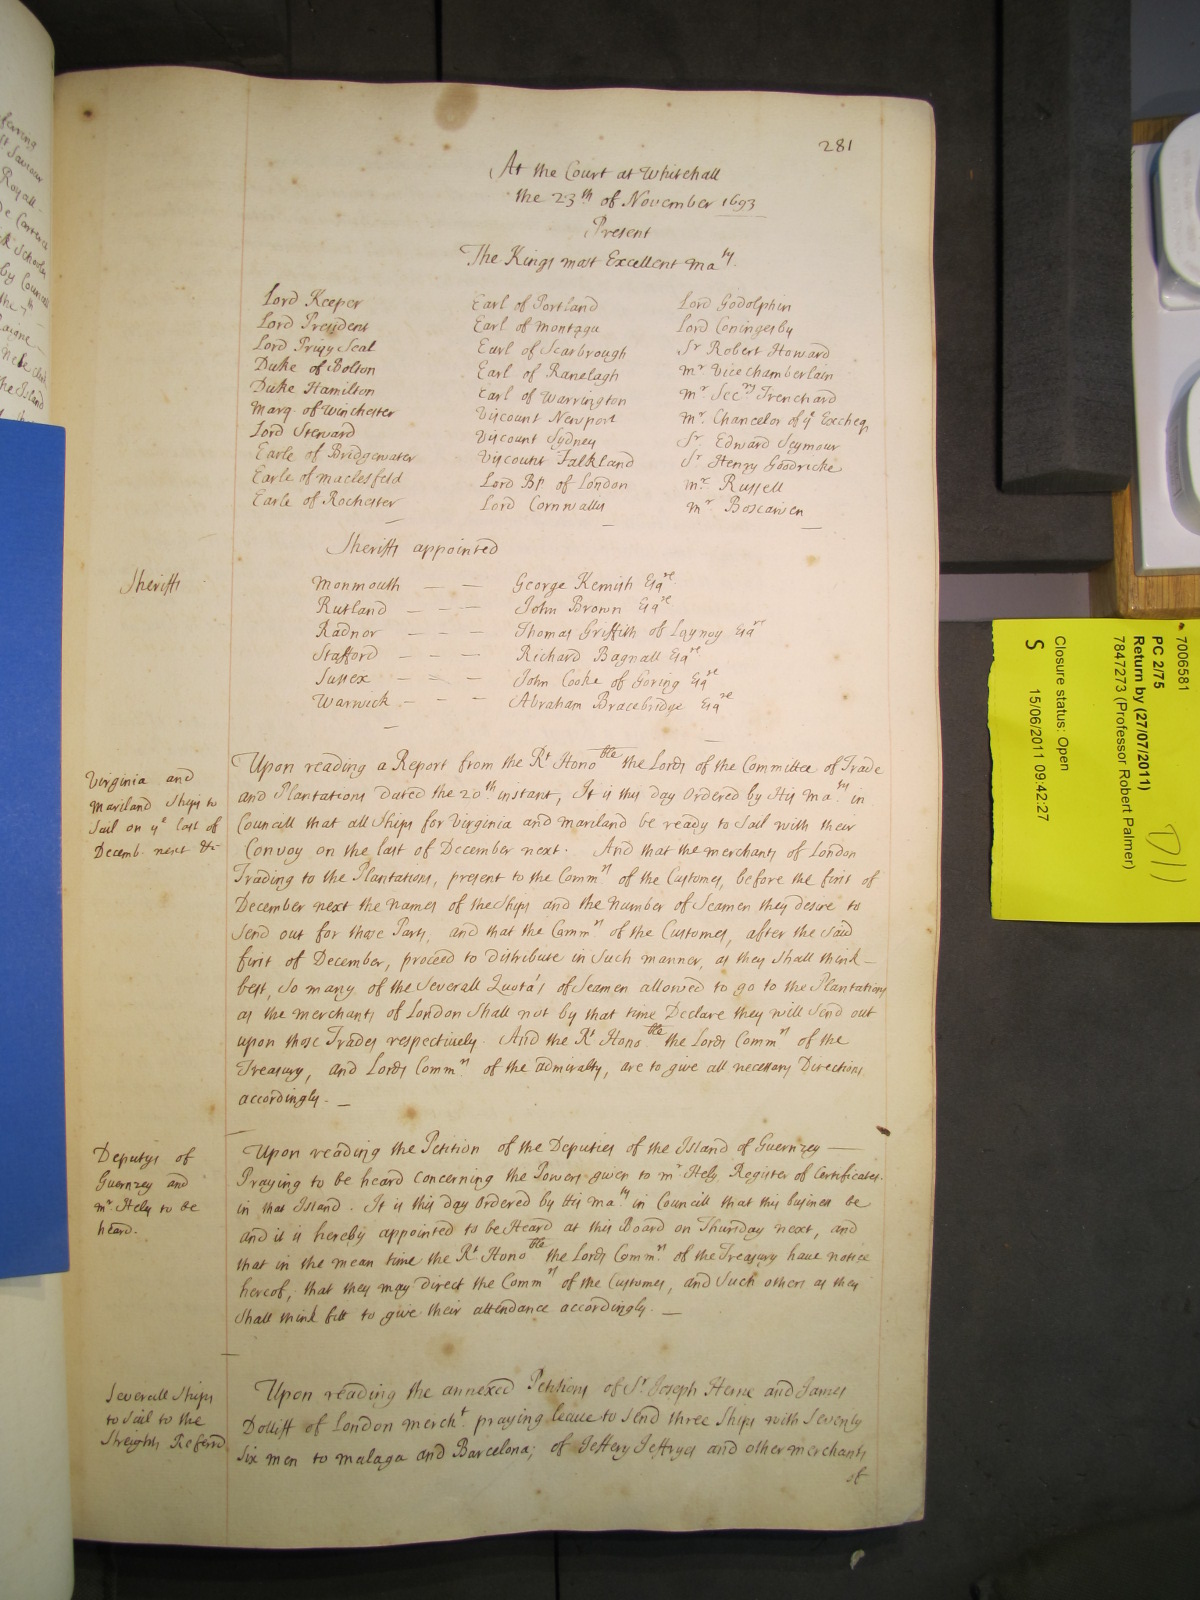 281
At the Court at Whitehall
the 23th of November 1693
Present
The Kings most Excellent Maty.
Lord Keeper
Lord President
Lord Privy Seal
Duke of Bolton
Duke Hamilton
Marq. of Winchester
Lord Steward
Earle of Bridgewater
Earle of Maclesfeld
Earle of Rochester
Earl of Portland
Earl of Montagu
Earl of Scarbrough
Earl of Ranelagh
Earl of Warrington
Viscount Newport
Viscount Sydney
Viscount Falkland
Lord Bp of London
Lord Cornwallis
Lord Godolphin
Lord Coningesby
Sr Robert Howard
Mr Vicechamberlain
Mr. Secry Trenchard
Mr. Chancelor of ye Excheqr
Sr. Edward Seymour
Sr Henry Goodricke
Mr. Russell
Mr. Boscawen
Sheriffs appointed
Sheriffs
Monmouth — — George Kemish Esqre.
Rutland — — — John Brown Esqre.
Radnor — — — Thomas Griffith of Esqre
Stafford — — — Richard Bagnall Esqre
Sussex — — — John Cooke of Goring Esqre
Warwick — — — Abraham Bracebridge Esqre
Virginia and
Mariland Ships to
Sail on ye last of
Decemb. next &c
Upon reading a Report from the Rt Honoble the Lords of the Committee of Trade
and Plantations Dated the 20th instant, It is this day Ordered by His Maty in
Councill that all Ships for Virginia and Mariland be ready to Sail with their
Convoy on the last of December next. And that the Merchants of London
Trading to the Plantations, present to the Commrs of the Customes, before the first of
December next the names of the Ships and the Number of Seamen they desire to
Send out for those Parts, and that the Commrs of the Customes, after the said
first of December, proceed to distribute in Such manner, as they Shall think —
best, So many of the Severall Quota's of Seamen allowed to go to the Plantations
as the Merchants of London Shall not by that time Declare they will Send out
upon those Trades respectively. And the Rt Honoble the Lords Commrs of the
Treasury, and Lords Commrs of the Admiralty, are to give all necessary Directions
accordingly. —
Deputys of
Guernzey and
Mr Hely to be
heard.
Upon reading the Petition of the Deputies of the Island of Guernzey —
Praying to be heard concerning the Powers given to Mr Hely Register of Certificates.
in that Island. It is this day Ordered by His Maty in Councill that this business be
and it is hereby appointed to be Heard at this Board on Thursday next, and
that in the mean time the Rt Honoble the Lords Commrs of the Treasury have notice
hereof, that they may Direct the Commrs of the Customes, and Such others as they
Shall think fitt to give their attendance accordingly. —
Severall Ships
to Sail to the
Streights Referrd
Upon reading the annexed Petitions of Sr Joseph Herne and James
Dolliff of London Mercht. praying leave to Send three Ships with Seventy
Six men to Malaga and Barcelona; of Jeffery Jeffryes and other Merchants
of
7006581
PC 2/75
Return by (27/07/2011)
7847273 (Professor Robert Palmer)
Closure status: Open
S
15/06/2011 09:42:27